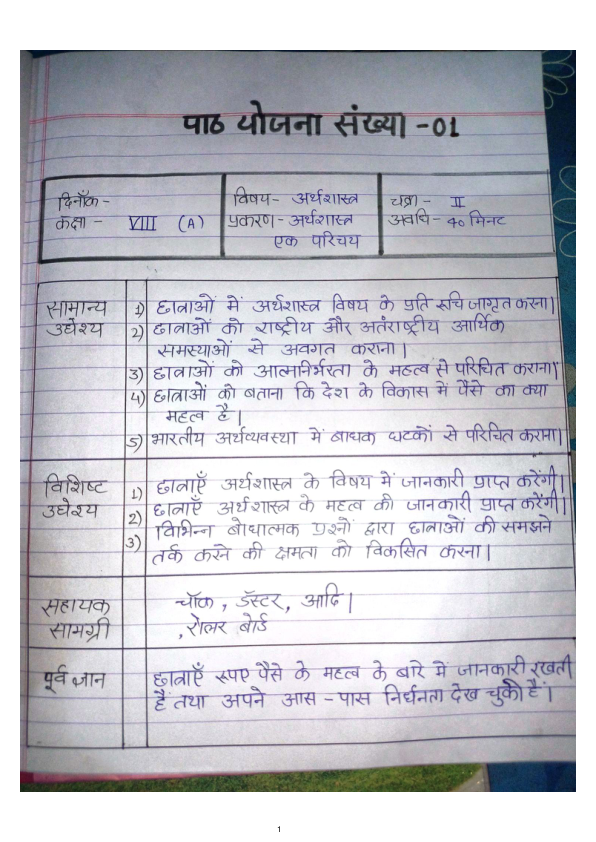 पाठ योजना संख्या -01
दिनाँक -
कक्षा - VIII (A)
विषय- अर्थशास्त्र
प्रकरण- अर्थशास्त्र
एक परिचय
चक्र - II
अवधि - 40 मिनट
सामान्य
उद्येश्य
1) छात्राओं में अर्थशास्त्र विषय के प्रति रूचि जागृत करना।
2) छात्राओं को राष्ट्रीय और अतंराष्ट्रीय आर्थिक
समस्याओं से अवगत कराना।
3) छात्राओं को आत्मानिर्भरता के महत्व से परिचित कराना।
4) छात्राओं को बताना कि देश के विकास में पैसे का क्या
महत्व है।
5) भारतीय अर्थव्यवस्था में बाधक घटकों से परिचित कराना।
विशिष्ट
उद्येश्य
1) छात्राएँ अर्थशास्त्र के विषय में जानकारी प्राप्त करेंगी।
2) छात्राएँ अर्थशास्त्र के महत्व की जानकारी प्राप्त करेंगी।
3) विभिन्न बोधात्मक प्रश्नों द्वारा छात्राओं की समझने
तर्क करने की क्षमता को विकसित करना।
सहायक
सामग्री
चॉक, डॅस्टर, आदि।
, रोलर बोर्ड
पूर्व ज्ञान
छात्राएँ रूपए पैसे के महत्व के बारे में जानकारी रखती
हैं तथा अपने आस - पास निर्धनता देख चुकी है।
1